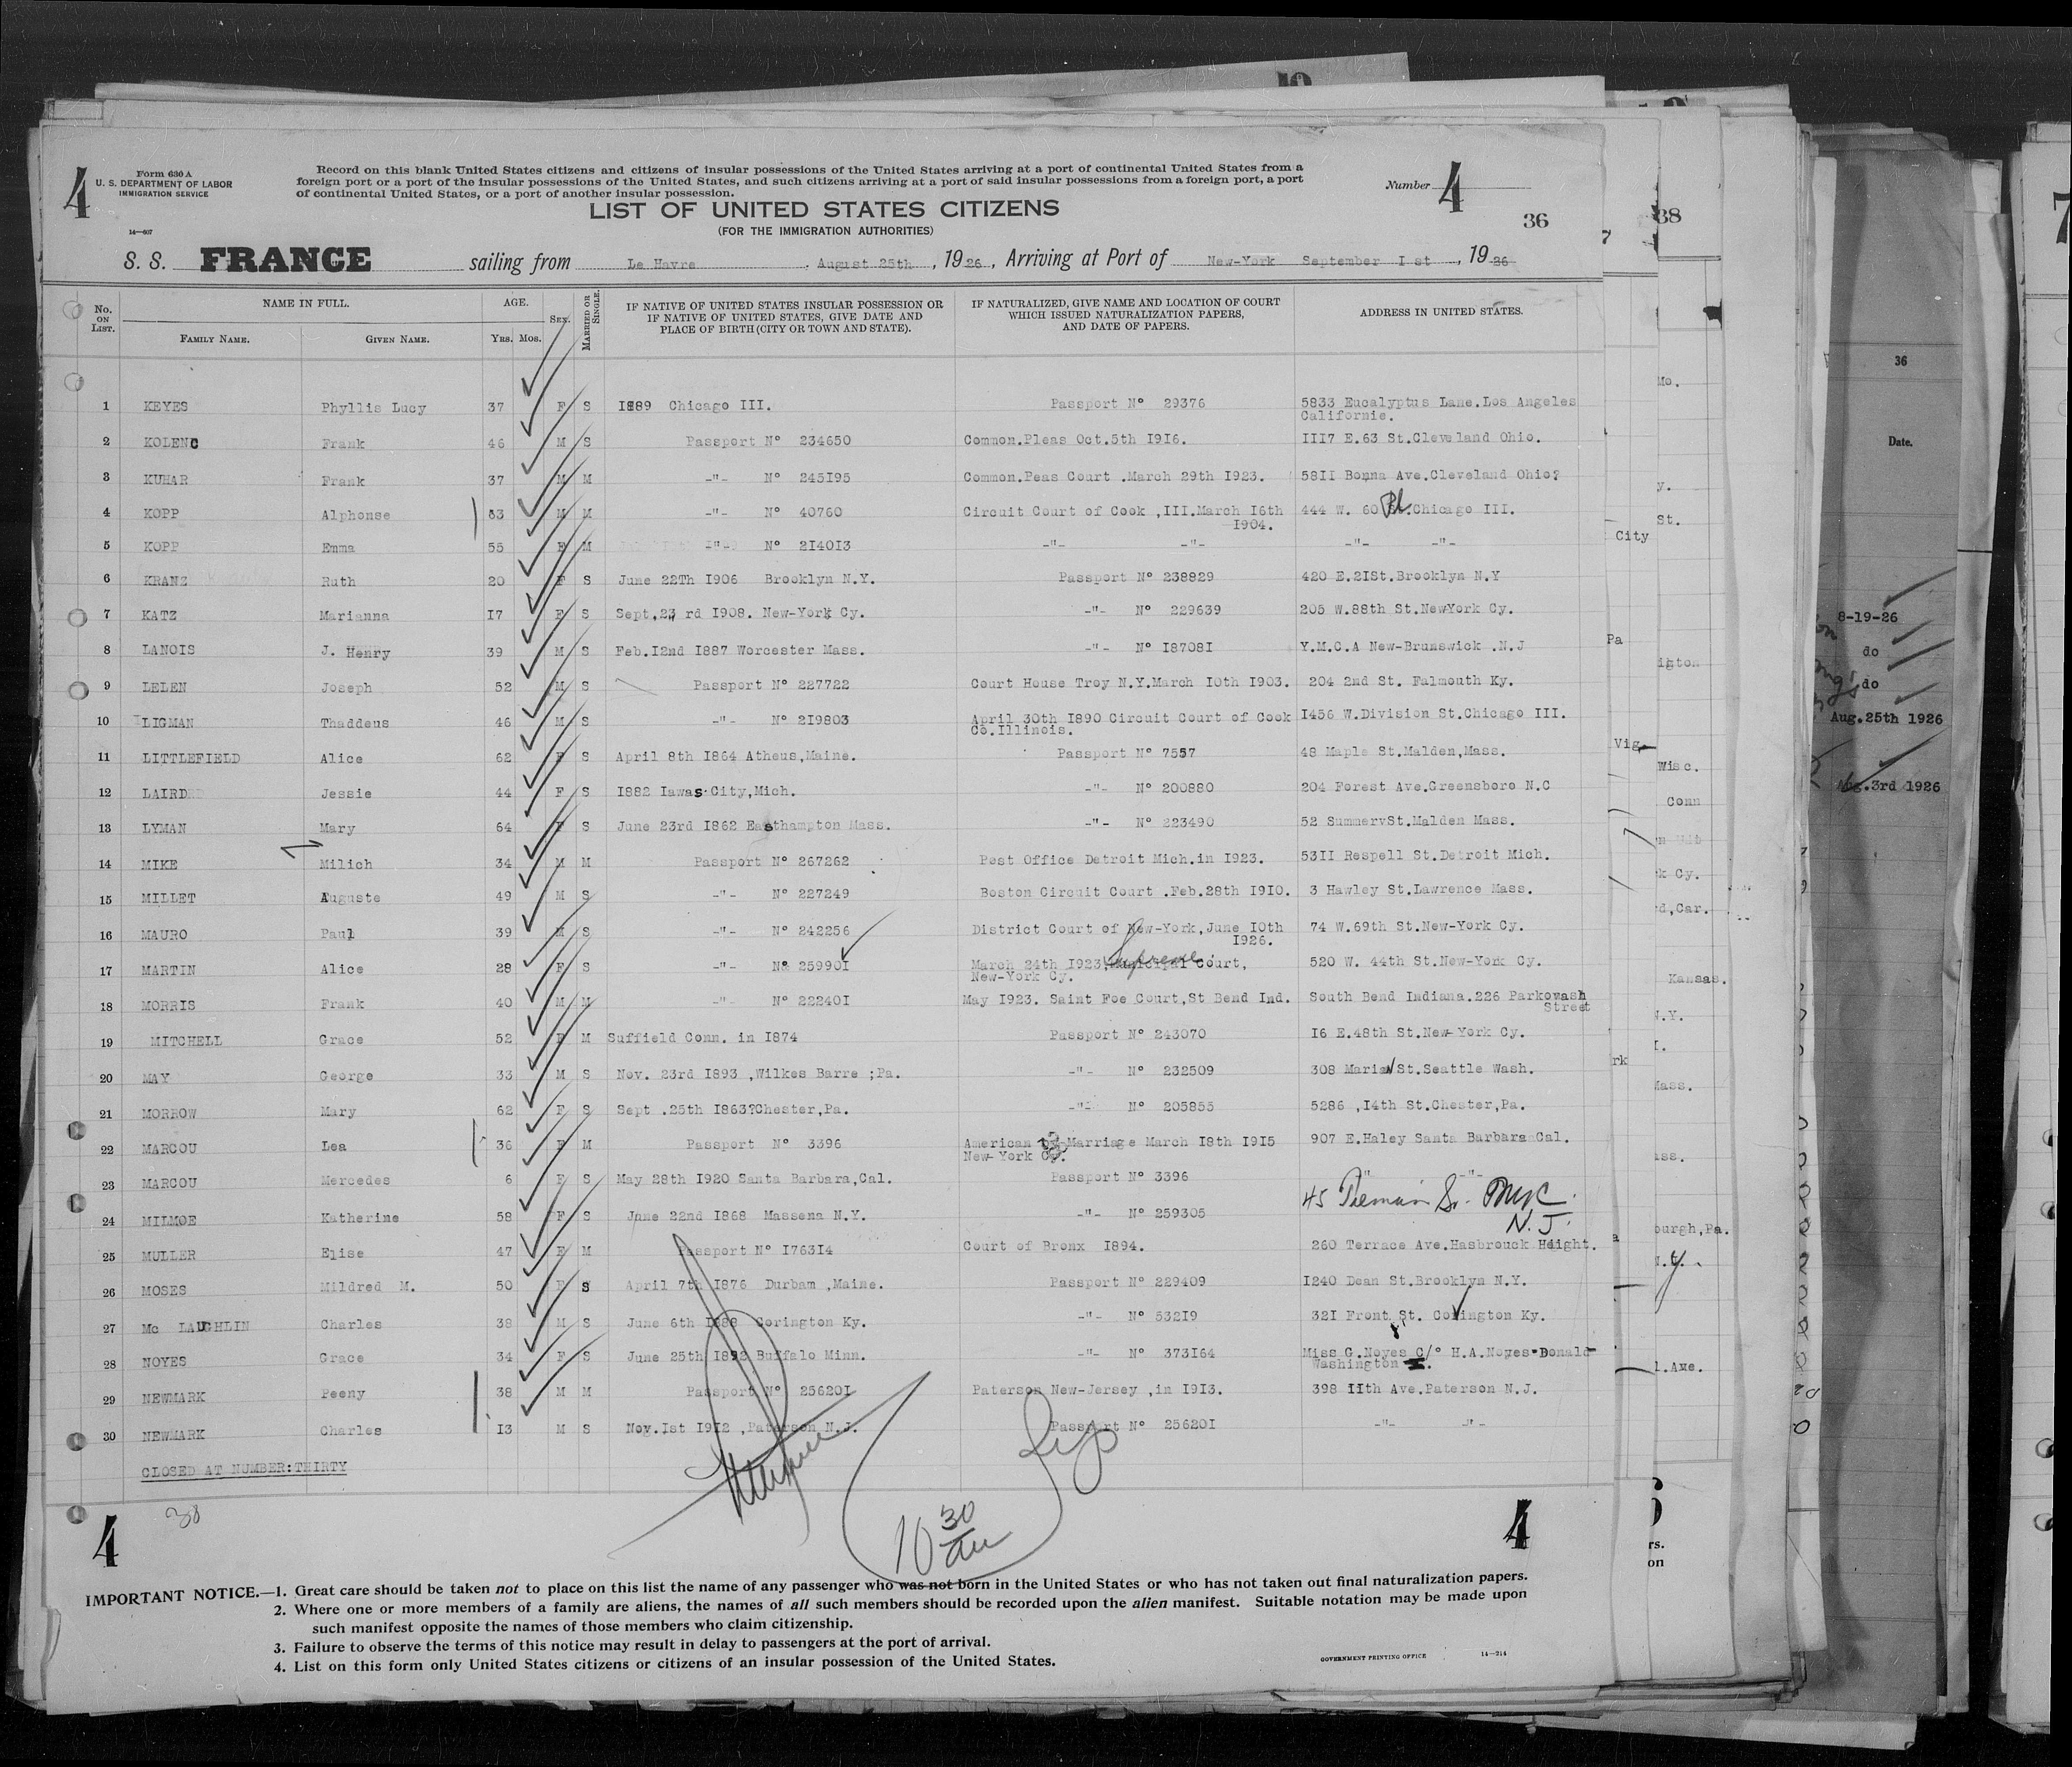 4
Form 630 A
U. S. DEPARTMENT OF LABOR
IMMIGRATION SERVICE
14—607
Record on this blank United States citizens and citizens of insular possessions of the United States arriving at a port of continental United States from a
foreign port or a port of the insular possessions of the United States, and such citizens arriving at a port of said insular possessions from a foreign port, a port
of continental United States, or a port of another insular possession.
Number 4
36
LIST OF UNITED STATES CITIZENS
(FOR THE IMMIGRATION AUTHORITIES)
S. S. FRANCE sailing from Le Havre , August 25th , 1926 , Arriving at Port of New-York September I st , 1926
No. ON LIST. NAME IN FULL. AGE. SEX. MARRIED OR SINGLE. IF NATIVE OF UNITED STATES INSULAR POSSESSION OR IF NATIVE OF UNITED STATES, GIVE DATE AND PLACE OF BIRTH (CITY OR TOWN AND STATE). IF NATURALIZED, GIVE NAME AND LOCATION OF COURT WHICH ISSUED NATURALIZATION PAPERS, AND DATE OF PAPERS. ADDRESS IN UNITED STATES.
FAMILY NAME. GIVEN NAME. YRS. MOS.
1 KEYES Phyllis Lucy 37 F S I889 Chicago III. Passport N° 29376 5833 Eucalyptus Lane.Los Angeles
Californie.
2 KOLENC Frank 46 M S Passport N° 234650 Common.Pleas Oct.5th I9I6. III7 E.63 St.Cleveland Ohio.
3 KUHAR Frank 37 M M -"- N° 245I95 Common.Peas Court .March 29th I923. 58II Bonna Ave.Cleveland Ohio?
4 KOPP Alphonse 53 M M -"- N° 40760 Circuit Court of Cook ,III.March I6th 444 W. 60 Pl.Chicago III.
I904.
5 KOPP Emma 55 F M -"- N° 2I40I3 -"- -"- -"- -"-
6 KRANZ Ruth 20 F S June 22Th I906 Brooklyn N.Y. Passport N° 238829 420 E.2ISt.Brooklyn N.Y
7 KATZ Marianna I7 F S Sept.23 rd I908. New-York Cy. -"- N° 229639 205 W.88th St.NewYork Cy.
8 LANOIS J. Henry 39 M S Feb.I2nd I887 Worcester Mass. -"- N° I8708I Y.M.C.A New-Brunswick .N.J
9 LELEN Joseph 52 M S Passport N° 227722 Court House Troy N.Y.March I0th I903. 204 2nd St. Falmouth Ky.
10 LIGMAN Thaddeus 46 M S -"- N° 2I9803 April 30th I890 Circuit Court of Cook I456 W.Division St.Chicago III.
Co.Illinois.
11 LITTLEFIELD Alice 62 F S April 8th I864 Atheus,Maine. Passport N° 7557 48 Maple St.Malden,Mass.
12 LAIRD Jessie 44 F S I882 Iawas City,Mich. -"- N° 200880 204 Forest Ave.Greensboro N.C
13 LYMAN Mary 64 F S June 23rd I862 Easthampton Mass. -"- N° 223490 52 SummervSt.Malden Mass.
14 MIKE Milich 34 M M Passport N° 267262 Post Office Detroit Mich.in I923. 53II Respell St.Detroit Mich.
15 MILLET Auguste 49 M S -"- N° 227249 Boston Circuit Court .Feb.28th I9I0. 3 Hawley St.Lawrence Mass.
16 MAURO Paul 39 M S -"- N° 242256 District Court of New-York,June I0th 74 W.69th St.New-York Cy.
I926.
17 MARTIN Alice 28 F S -"- N° 25990I March 24th I923, Supreme Court, 520 W. 44th St.New-York Cy.
New-York Cy.
18 MORRIS Frank 40 M M -"- N° 22240I May I923. Saint Foe Court,St Bend Ind. South Bend Indiana.226 Parkowash
Street
19 MITCHELL Grace 52 F M Suffield Conn. in I874 Passport N° 243070 I6 E.48th St.New-York Cy.
20 MAY George 33 M S Nov. 23rd I893 ,Wilkes Barre ;Pa. -"- N° 232509 308 Marion St.Seattle Wash.
21 MORROW Mary 62 F S Sept .25th I863?Chester,Pa. -"- N° 205855 5286 ,I4th St.Chester,Pa.
22 MARCOU Lea 36 F M Passport N° 3396 American by Marriage March I8th I9I5 907 E.Haley Santa BarbaraCal.
New-York Cy.
23 MARCOU Mercedes 6 F S May 28th I920 Santa Barbara,Cal. Passport N° 3396 " -"-
24 MILMOE Katherine 58 F S June 22nd I868 Massena N.Y. -"- N° 259305 45 St. NYC
N.J.
25 MULLER Elise 47 F M Passport N° I763I4 Court of Bronx I894. 260 Terrace Ave.Hasbrouck Height.
26 MOSES Mildred M. 50 F S April 7th I876 Durbam ,Maine. Passport N° 229409 I240 Dean St.Brooklyn N.Y.
27 Mc LAUGHLIN Charles 38 M S June 6th I888 Corington Ky. -"- N° 532I9 32I Front St. Covington Ky.
28 NOYES Grace 34 F S June 25th I892 Buffalo Minn. -"- N° 373I64 Miss G.Noyes C/° H.A.Noyes-Donald-
Washington
29 NEWMARK Peeny 38 M M Passport N° 25620I Paterson New-Jersey ,in I9I3. 398 IIth Ave.Paterson N.J.
30 NEWMARK Charles I3 M S Nov.1st I9I2 ,Paterson N.J. Passport N° 25620I -"- -"-
CLOSED AT NUMBER:THIRTY
30
4
10 30
am
4
IMPORTANT NOTICE.—1. Great care should be taken not to place on this list the name of any passenger who was not born in the United States or who has not taken out final naturalization papers.
2. Where one or more members of a family are aliens, the names of all such members should be recorded upon the alien manifest. Suitable notation may be made upon
such manifest opposite the names of those members who claim citizenship.
3. Failure to observe the terms of this notice may result in delay to passengers at the port of arrival.
4. List on this form only United States citizens or citizens of an insular possession of the United States.
GOVERNMENT PRINTING OFFICE 14—214
38
Mo.
St.
City
Pa
Wisc.
Conn
Kansas.
N.Y.
Mass.
36
Date.
8-19-26
do
do
Aug.25th 1926
Aug.3rd 1926